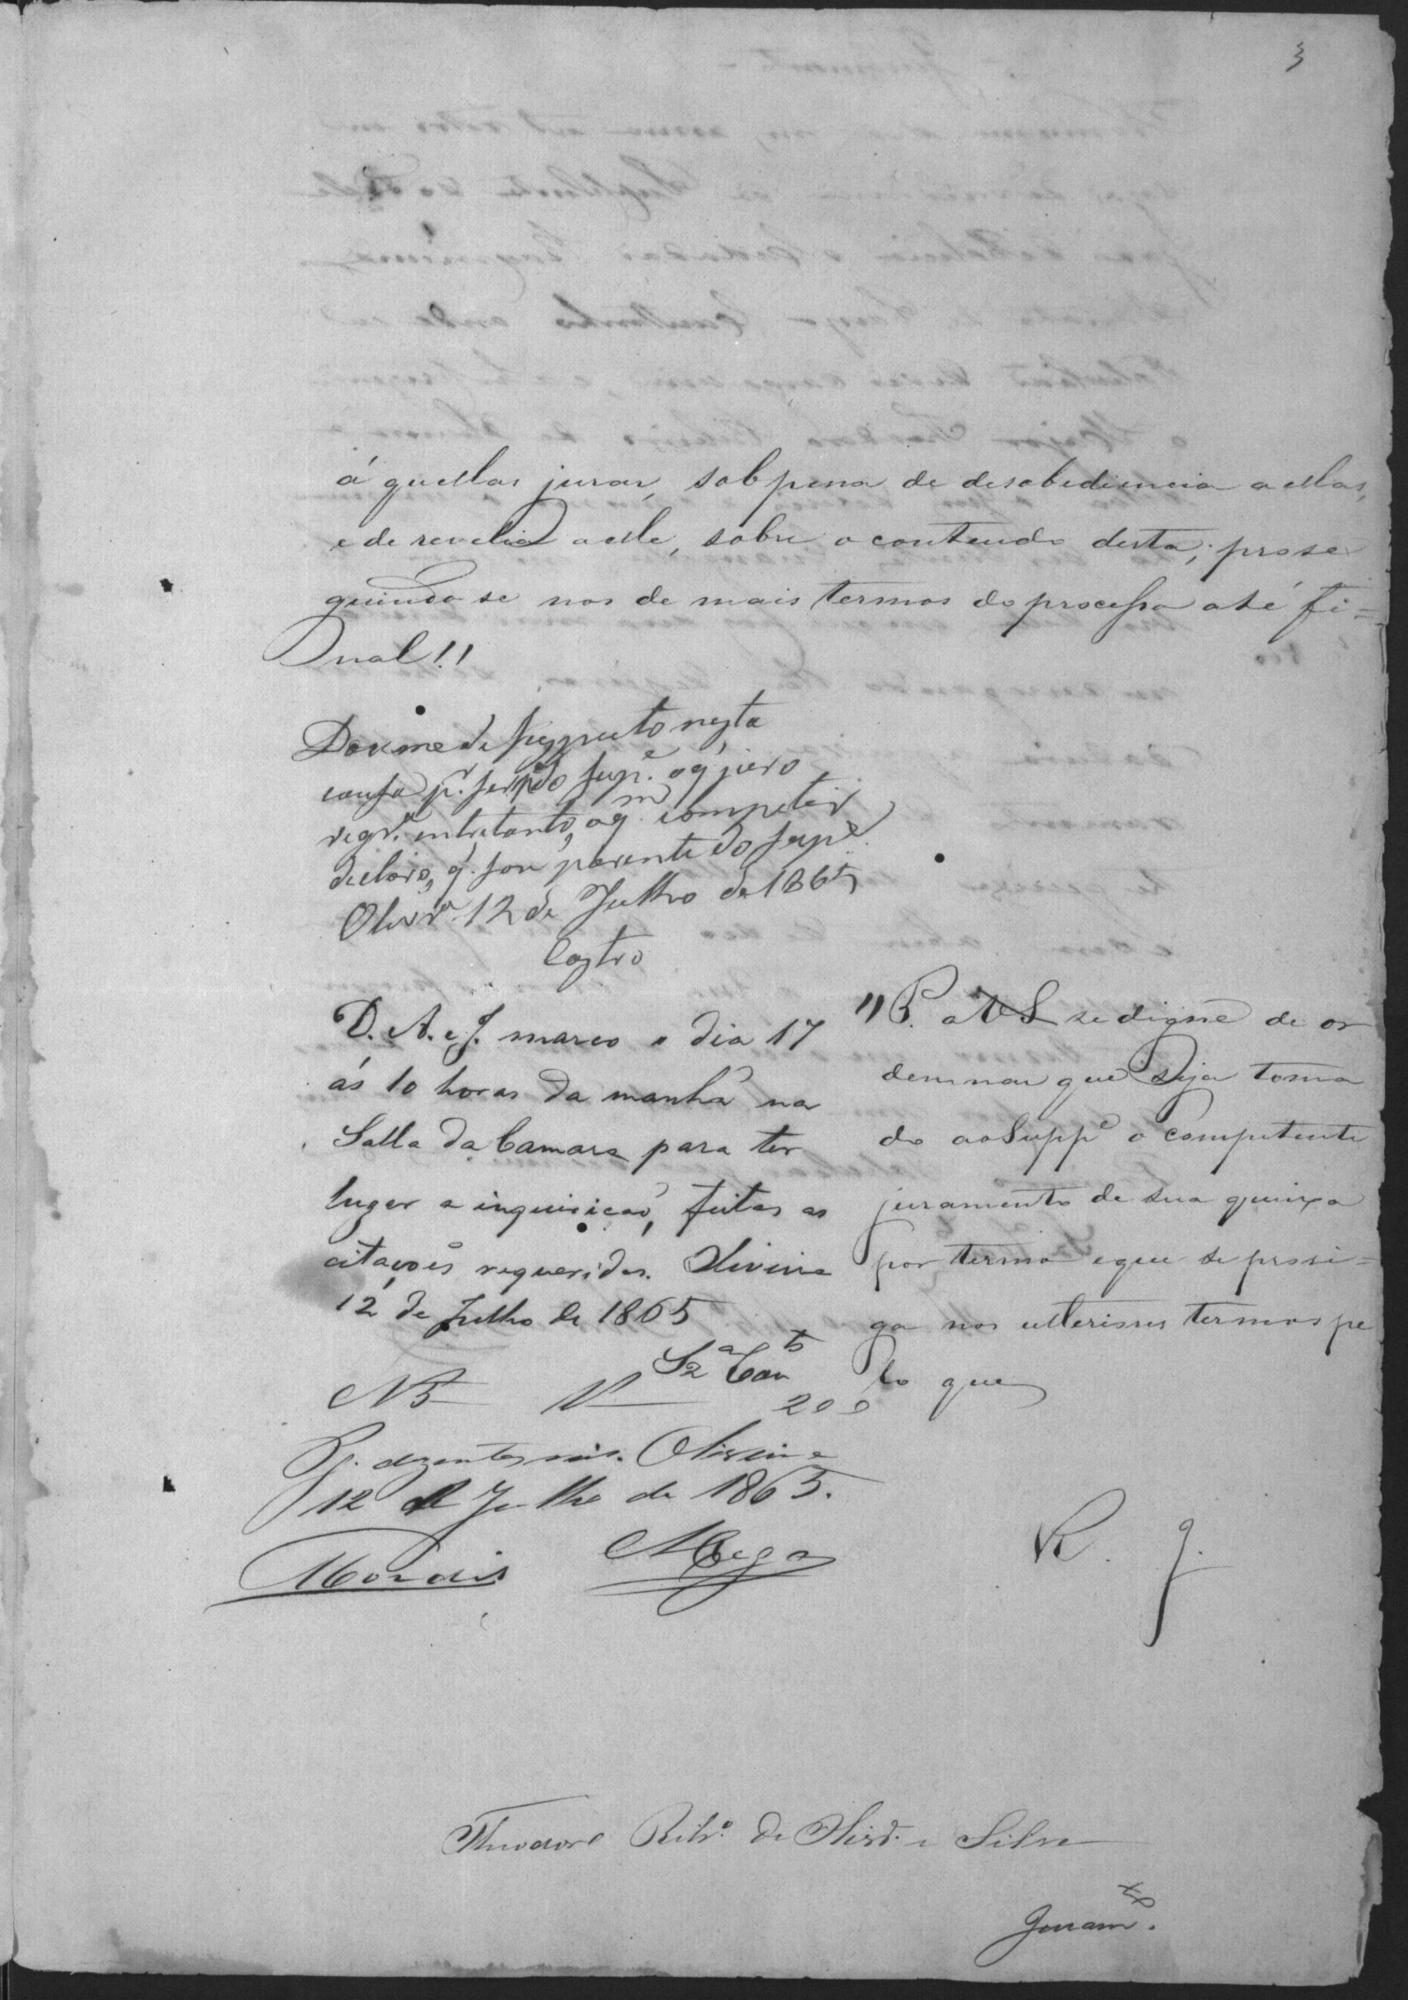 3
á quellas jurar, sob pena de desobediencia a ellas,
e de revelia a elle, sobre o contendo desta; prose
guindo se nos de mais termos do processo até fi=
nal!!
Dou me de suspeito nesta
causa pr. ser do Supe. o q' juro
entretanto, a qm competir
declaro, q. sou parente do Supe.
Olivra. 12 de Julho de 1865
Castro
D. A. e J. marco o dia 17
ás 10 horas da manhã na
Salla da Camara para ter
lugar a inquirição, feitas as
citações requeridas. Oliveira
12 de Julho de 1865
Sza Canto
N5 V 200
Pg. duzentos reis. Oliveira
12 de Julho de 1865.
Moraes
"P. a V S se digne de or
demnar que seja toma
do ao Suppe o competente
juramento de sua queixa
por termo e que se prosi=
ga nos ulteriores termos pe
lo que
R. J.
Theodoro Ribro. de Olivra. e Silva
Juramto.